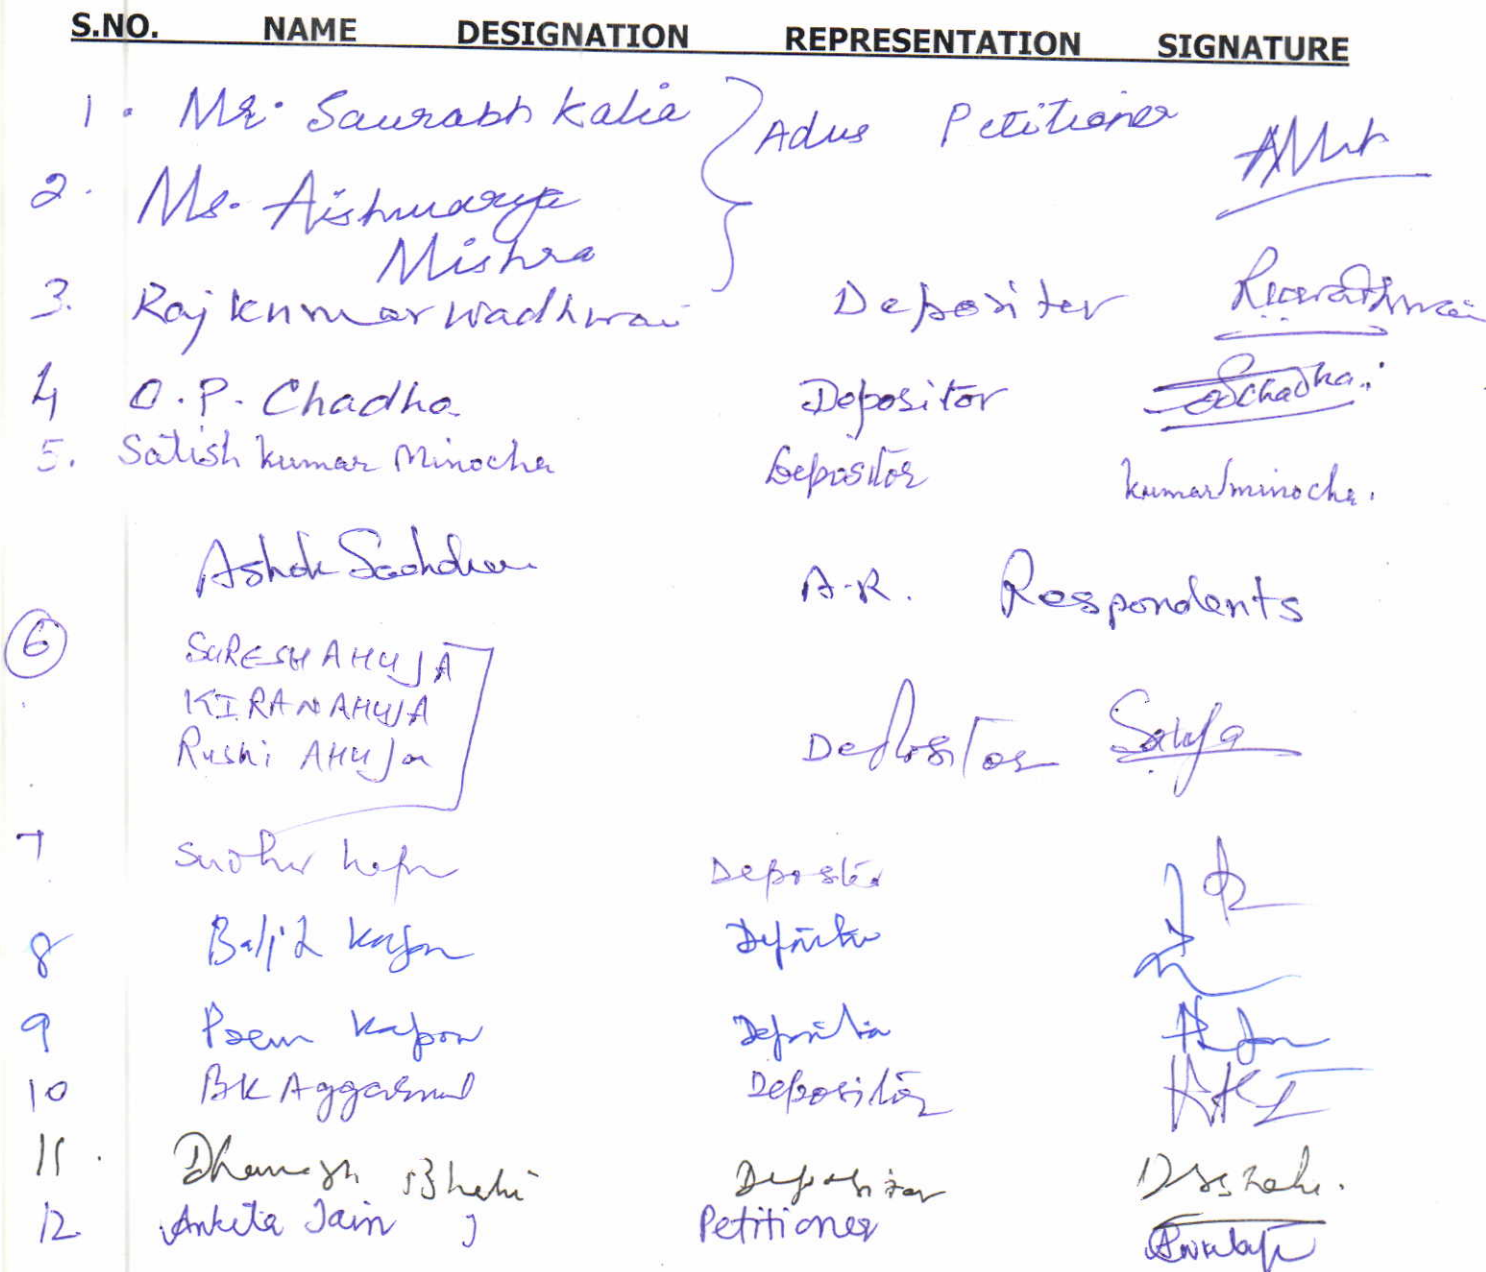 S.NO. NAME DESIGNATION REPRESENTATION SIGNATURE
1. Mr. Saurabh Kalia Advs Petitioner
2. Ms. Aishwarya
Mishra
3. Raj Kumar Wadhwai Depositer
4 O.P. Chadha Depositor
5. Satish Kumar Minocha Depositor Kumar minocha.
Ashok Sachdeva A.R. Respondents
6 SURESH AHUJA
KIRAN AHUJA
Rushi AHUJA Depositor
7 Sudhir Depositor
8 Baljit Kapoor Depositor
9 Prem Kapoor Depositor
10 BK Aggarwal Depositor
11. Depositor
12. Ankita Jain Petitioner